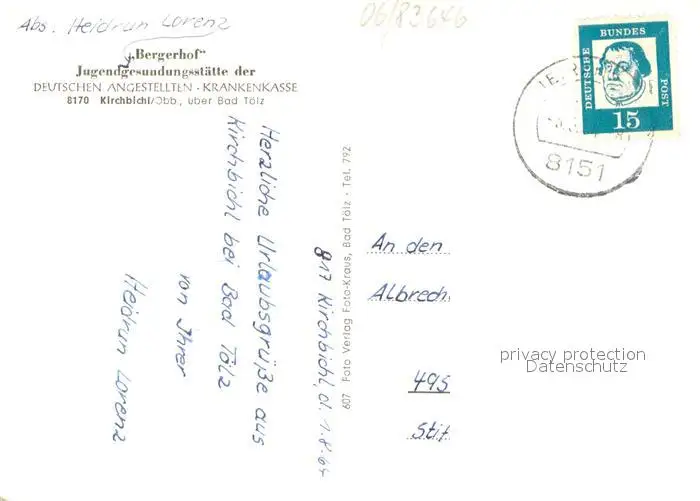 Abs. Heidrun Lorenz
06/83646
„Bergerhof“
Jugendgesundungsstätte der
DEUTSCHEN ANGESTELLTEN - KRANKENKASSE
8170 Kirchbichl/Obb., über Bad Tölz
817 Kirchbichl, d. 1.8.64
Herzliche Urlaubsgrüße aus
Kirchbichl bei Bad Tölz
von Ihrer
Heidrun Lorenz
607 Foto Verlag Foto-Kraus, Bad Tölz - Tel. 792
DEUTSCHE BUNDES POST
15
8151
An den
Albrech
495
Stif
privacy protection
Datenschutz